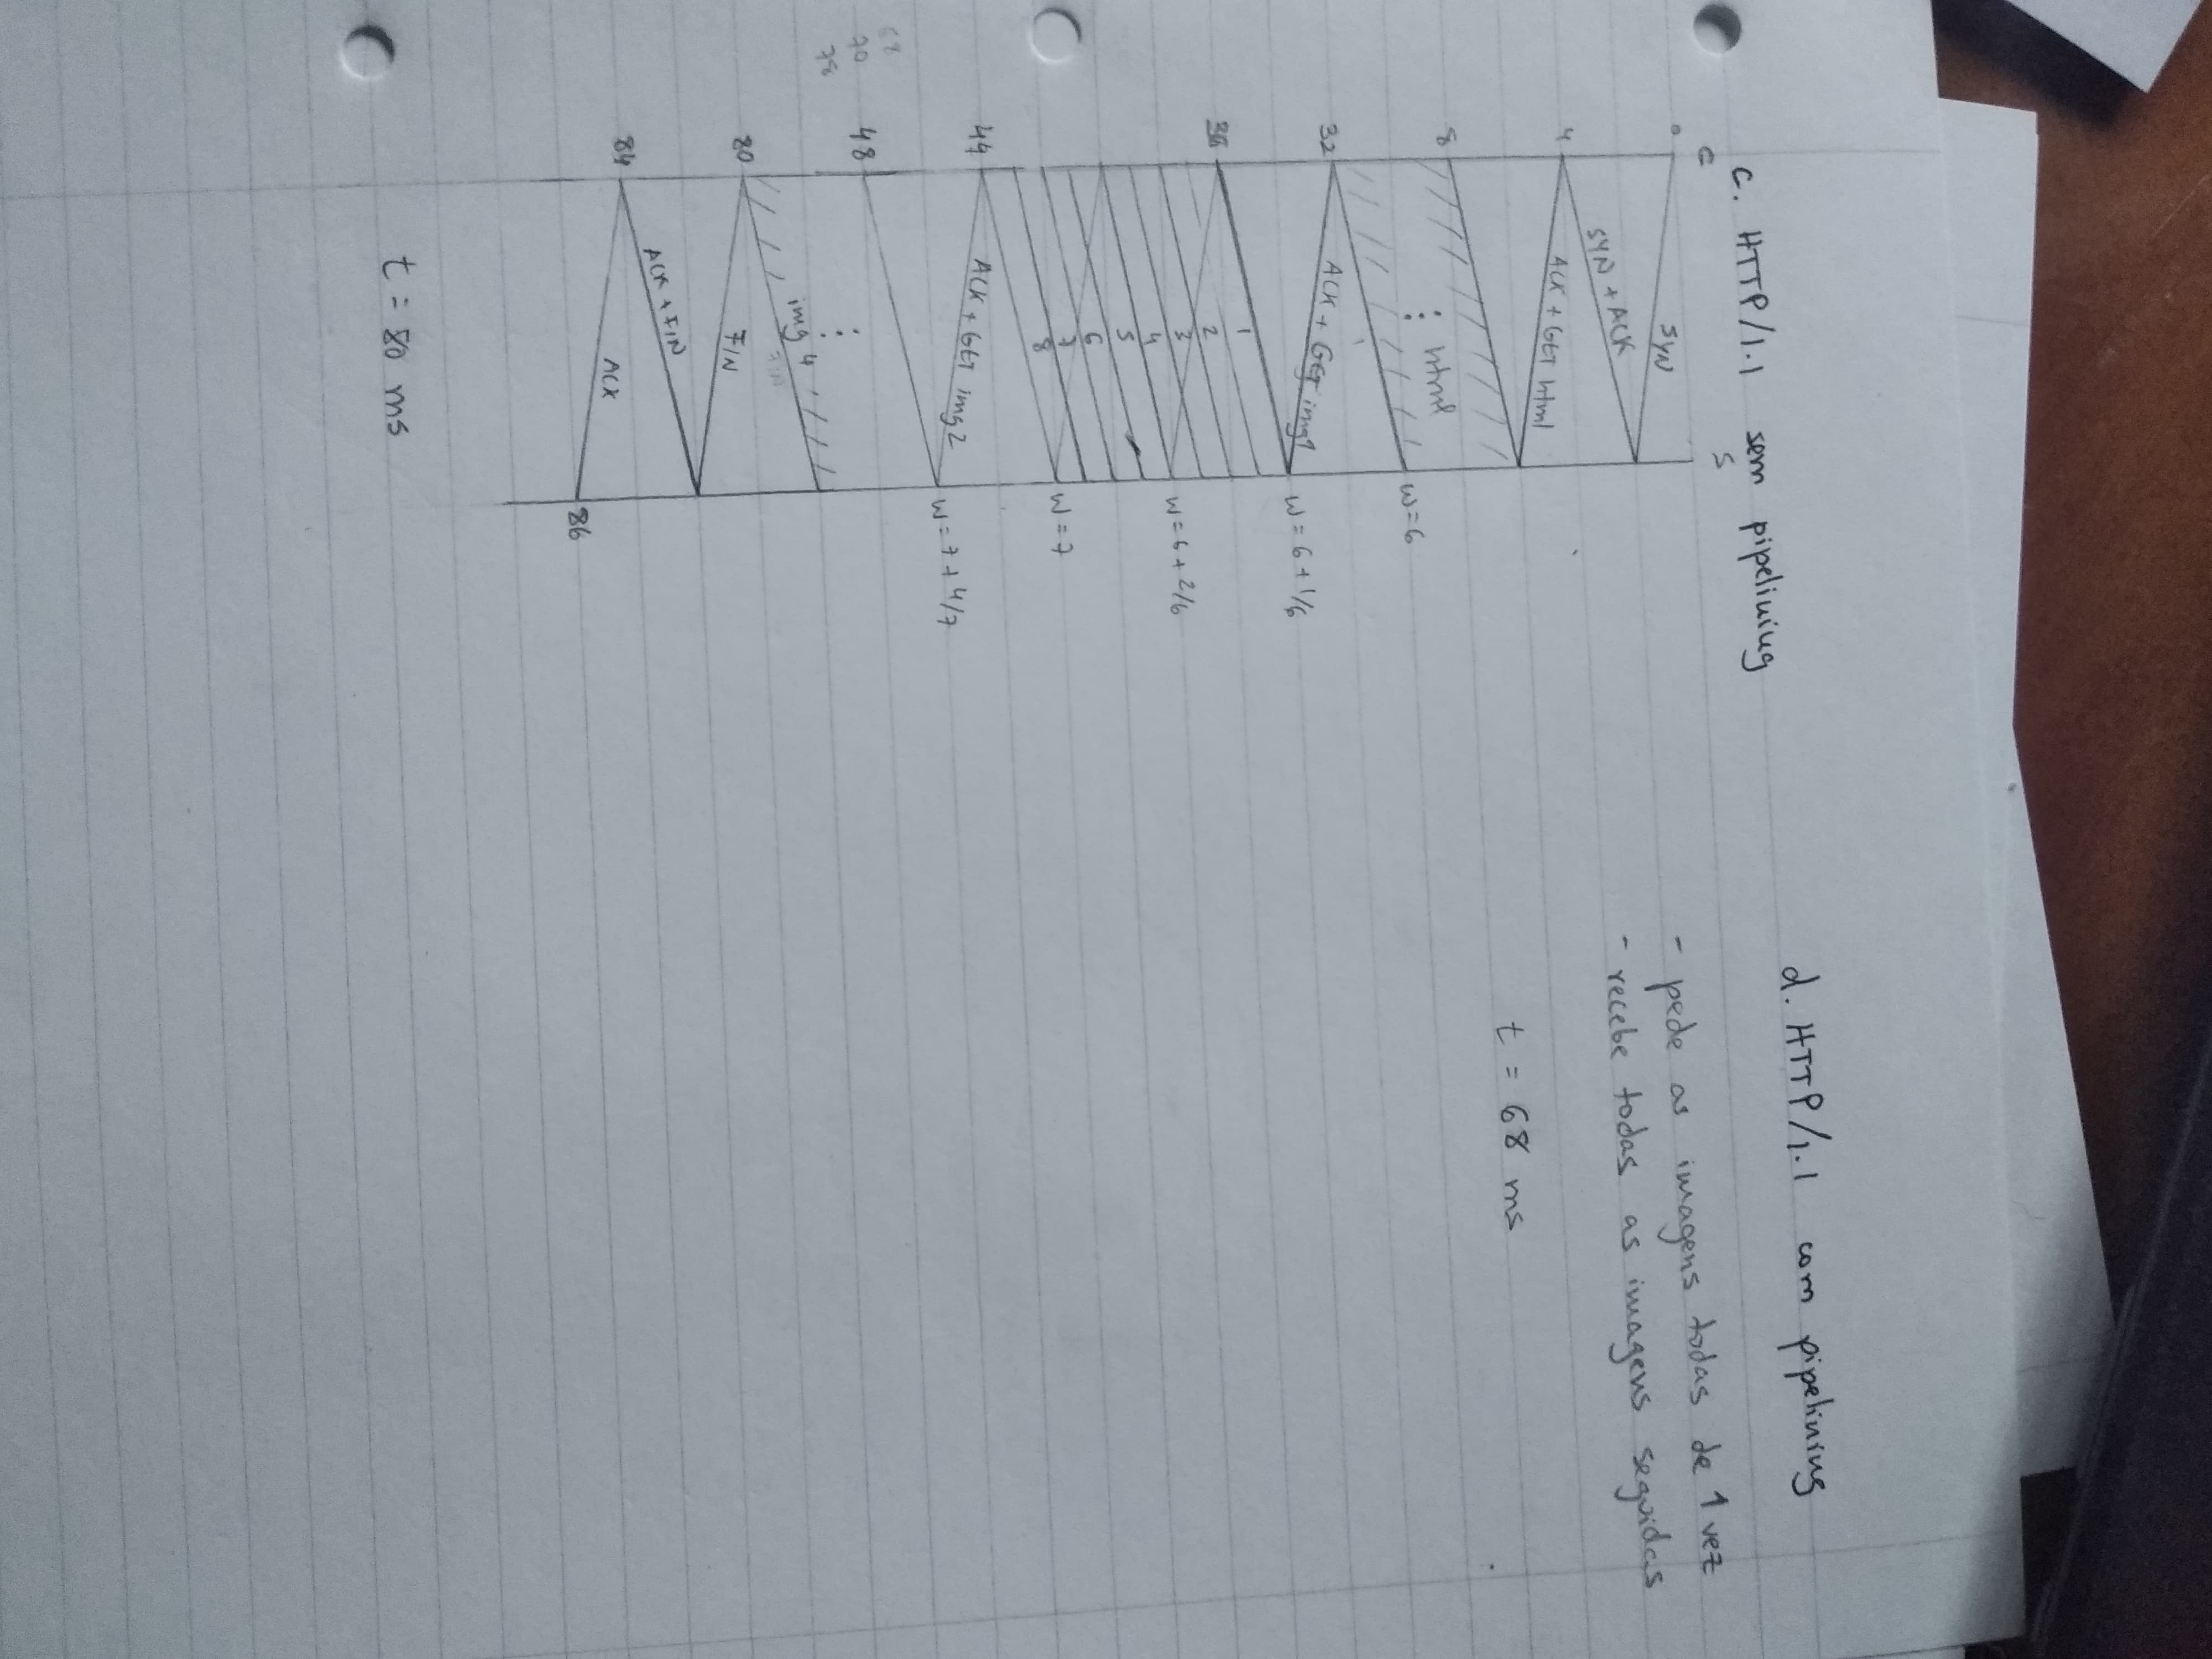 c. HTTP/1.1 sem pipelining
C S
0
SYN
SYN + ACK
4
ACK + GET html
8
⋮ html
W=6
32
ACK + GET img1
W = 6 + 1/6
36
1
2
3
W = 6 + 2/6
4
5
6
7
W = 7
8
44
ACK + GET img2
W = 7 + 4/7
68
70
78
48
⋮
img 4
FIN
80
FIN
ACK + FIN
84
ACK
86
t = 80 ms
d. HTTP/1.1 com pipelining
- pede as imagens todas de 1 vez
- recebe todas as imagens seguidas
t = 68 ms